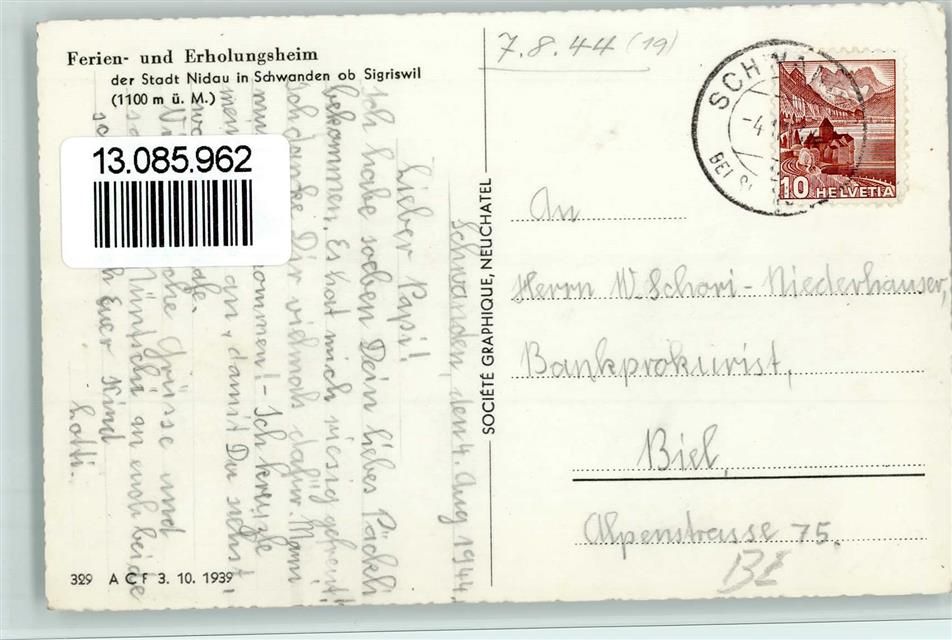 Ferien- und Erholungsheim
der Stadt Nidau in Schwanden ob Sigriswil
(1100 m ü. M.)
13.085.962
Schwanden, den 4. Aug 1944.
Lieber Papi!
Ich habe soeben Dein liebes Päckli
bekommen. Es hat mich riesig gefreut!
Ich danke Dir vielmals dafür. Mami
ommen! - Ich kreuze
mein an, damit Du siehst,
wo
che Grüsse und
Müntschi an euch beide
Euer Kind
Lotti.
329 A C F 3. 10. 1939
SOCIÉTÉ GRAPHIQUE, NEUCHATEL
7.8.44 (19)
SCHWAN
-4.
BEI SI
10 HELVETIA
An
Herrn W. Schori-Niederhauser,
Bankprokurist,
Biel,
Alpenstrasse 75.
BE